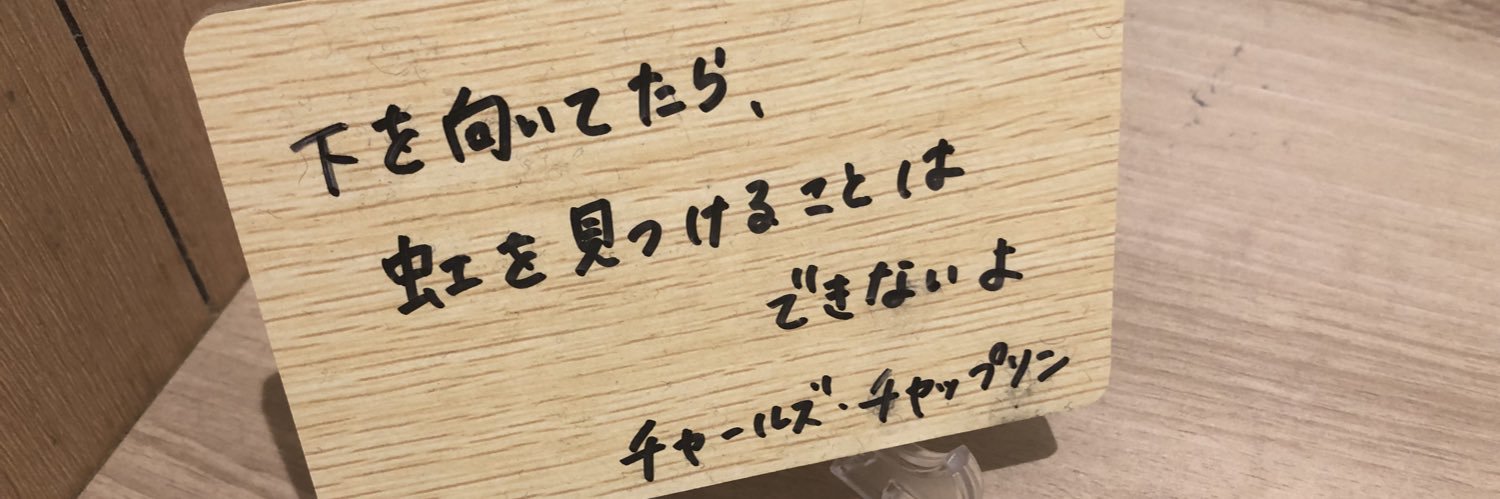 下を向いてたら、
虹を見つけることは
できないよ
チャールズ・チャップリン